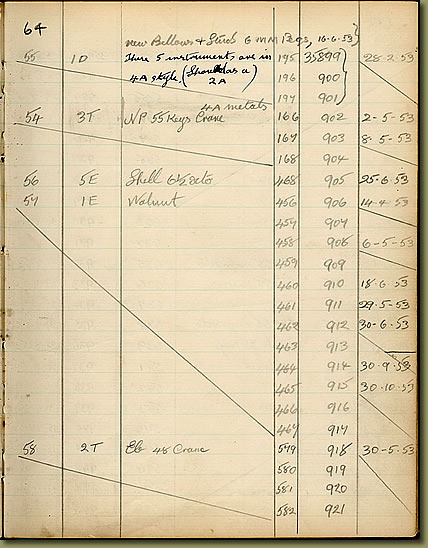 64
new Bellows & Stired 6 MM Pegs, 16-6-53}
55 1D These 5 instruments are in 195 35899 28-2-53
4A style. (Shared as a) 196 900
2A 197 901
4A metals
54 3T NP 55 Keys Crane 166 902 2-5-53
167 903 8-5-53
168 904
56 5E Shell 6½ 8cto 468 905 25-6-53
57 1E Walnut 456 906 14-4-53
457 907
458 908 6-5-53
459 909
460 910 18-6-53
461 911 29-5-53
462 912 30-6-53
463 913
464 914 30-9-53
465 915 30-10-53
466 916
467 917
58 2T Eb 48 Crane 579 918 30-5-53
580 919
581 920
582 921